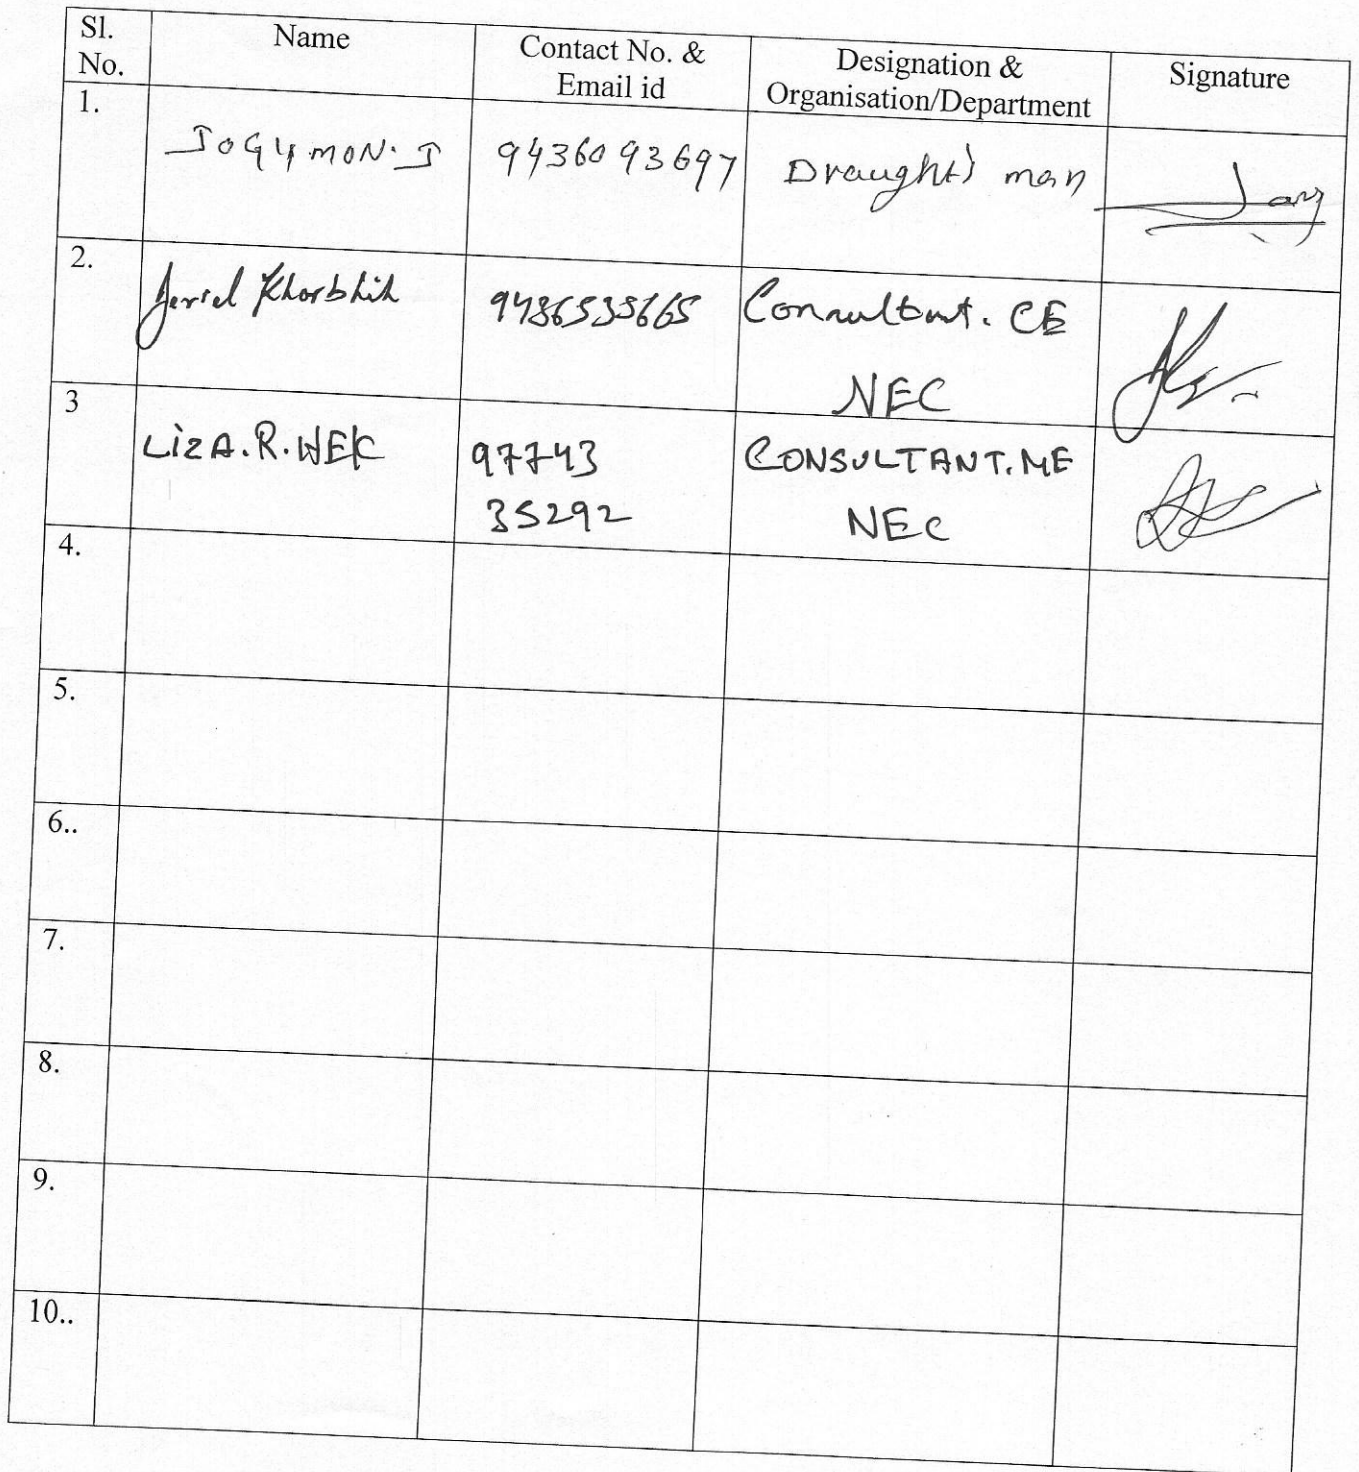 Sl. No.
Name
Contact No. &
Email id
Designation &
Organisation/Department
Signature
1.
9436093697
Draught's man
2.
Khorbhih
Consultant. CE
NEC
3
LiZA.R.WEK
97743
35292
CONSULTANT.ME
NEC
4.
5.
6..
7.
8.
9.
10..